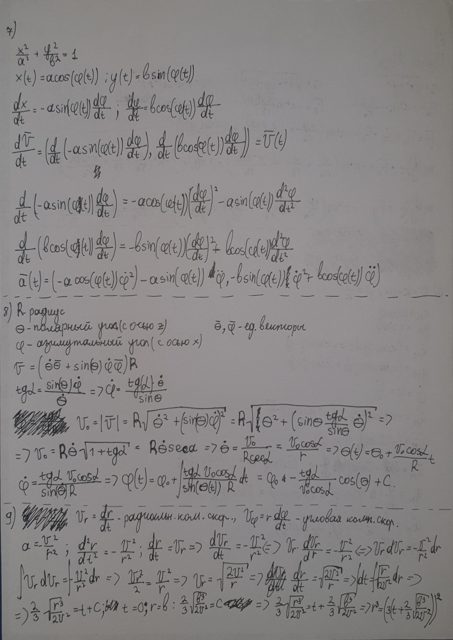 7)
x²/a² + y²/b² = 1
x(t) = a cos(φ(t)) ; y(t) = b sin(φ(t))
dx/dt = -a sin(φ(t)) dφ/dt ; dy/dt = b cos(φ(t)) dφ/dt
dv̅/dt = (d/dt (-a sin(φ(t)) dφ/dt), d/dt (b cos(φ(t)) dφ/dt)) = v̅(t)
d/dt (-a sin(φ(t)) dφ/dt) = -a cos(φ(t)) (dφ/dt)² - a sin(φ(t)) d²φ/dt²
d/dt (b cos(φ(t)) dφ/dt) = -b sin(φ(t)) (dφ/dt)² + b cos(φ(t)) d²φ/dt²
a̅(t) = (-a cos(φ(t)) φ̇² - a sin(φ(t)) φ̈, -b sin(φ(t)) φ̇² + b cos(φ(t)) φ̈)
8) R радиус
θ - полярный угол (с осью z) θ̅, φ̅ - ед. векторы
φ - азимутальный угол (с осью x)
v̅ = (θ̇ θ̅ + sin(θ) φ̇ φ̅) R
tgα = sin(θ) φ̇ / θ̇ => φ̇ = tg(α) θ̇ / sinθ
v₀ = |v̅| = R √(θ̇² + (sin(θ) φ̇)²) = R √(θ̇² + (sinθ tgα/sinθ θ̇)²) =>
=> v₀ = Rθ̇ √(1 + tg²α) = Rθ̇ secα => θ̇ = v₀/(R secα) = v₀ cosα/r => θ(t) = θ₀ + v₀ cosα/R t
φ̇ = tgα v₀ cosα / (sin(θ) R) => φ(t) = φ₀ + ∫ tgα v₀ cosα / (sin(θ(t)) R) dt = φ₀ + - tgα/(v₀ cosα) cos(θ) + C.
9) v_r = dr/dt - радиальн. ком. скор., v_φ = r dφ/dt - угловая комп. скор.
a = -v²/r² ; d²r/dt² = -v²/r² ; dr/dt = v_r => dv_r/dt = -v²/r² => v_r dv_r/dr = -v²/r² => v_r dv_r = -v²/r² dr
∫ v_r dv_r = ∫ v²/r² dr => v_r²/2 = v²/r => v_r = √(2v²/r) => dr/dt = √(2v²/r) => ∫dt = ∫ √(r/2v²) dr =>
=> 2/3 √(r³/2v²) = t + C; t = 0; r = b : 2/3 √(b³/2v²) = C => 2/3 √(r³/2v²) = t + 2/3 √(b³/2v²) => r³ = (3/2 t + 2/3 √(b³/2v²))²